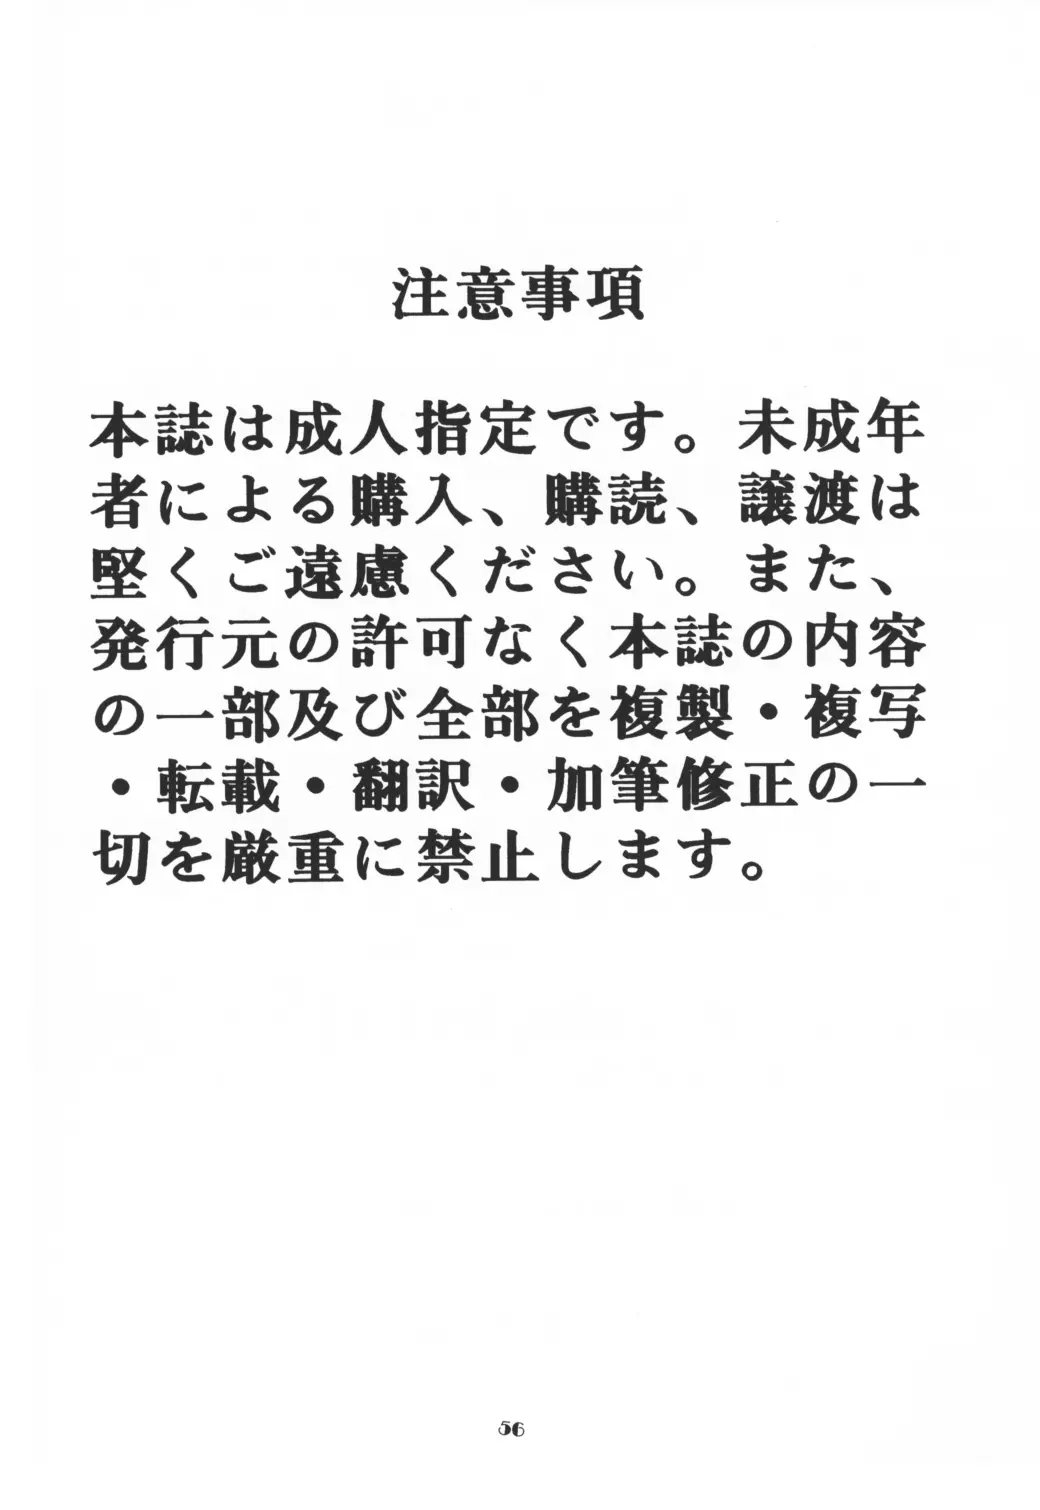 注意事項
本誌は成人指定です。未成年
者による購入、購読、譲渡は
堅くご遠慮ください。また、
発行元の許可なく本誌の内容
の一部及び全部を複製・複写
・転載・翻訳・加筆修正の一
切を厳重に禁止します。
56